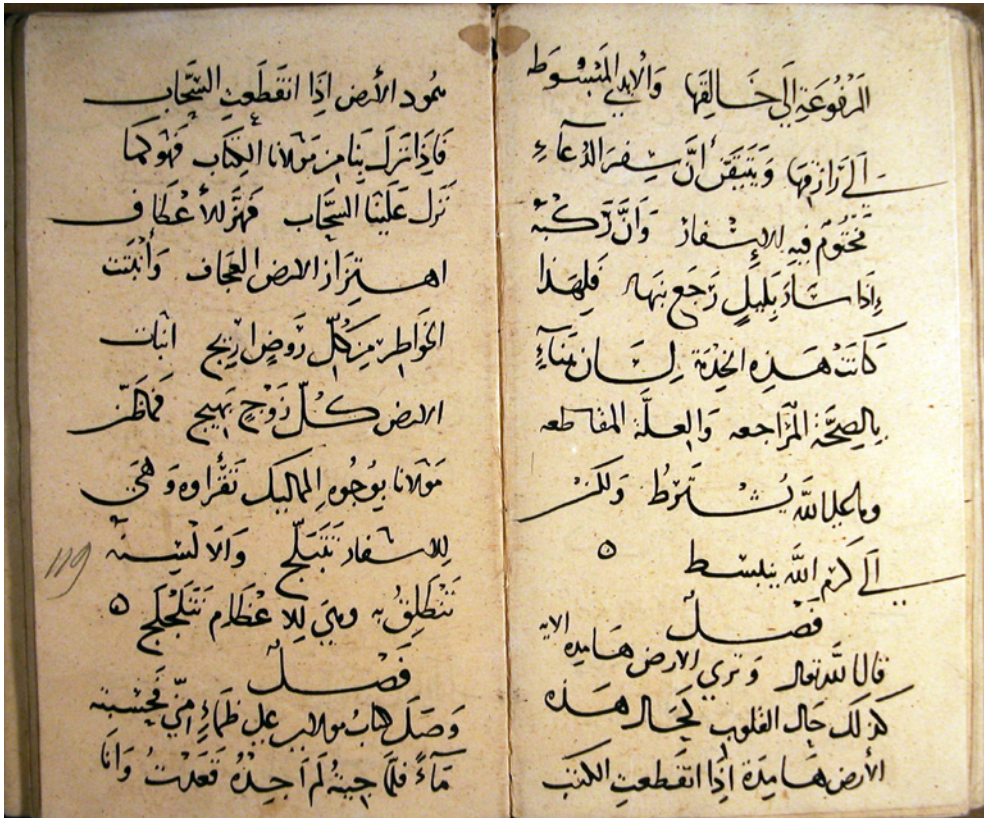 المرفوعة الى خالقها والايدي المبسوطه
الى رازقها ويتيقن أن سفر الدعاء
مختوم فيه الإسفار وأن ركبه
إذا سار بليل رجع بنهار فلهذا
كانت هذه الخدمة لسان هناء
بالصحة المراجعه والعلة المقاطعه
وما على الله يشترط ولكن
الى كرم الله ينبسط ۵
فصل
قال الله تعالى وترى الارض هامدة الاية
كذلك حال القلوب كحال هذه
الأرض هامدة إذا انقطعت الكتب
همود الأرض إذا انقطعت السحاب
فاذا نزل بنا من مولانا الكتاب فهو كما
نزل علينا السحاب فهز للأعطاف
اهتزاز الارض العجاف وأنبتت
الخواطر من كل روض اريج انبات
الارض كل زوج بهيج فما ظن
مولانا بوجوه المماليك تقراوه وهي
للاسفار تتبلج والالسنة
تنطلق به وهي للاعظام تتلجلج ۵
فصل
وصل كتاب مولاي على ظماء مني فحسبته
ماءً فلما جيته لم اجده فعدت وانا
119